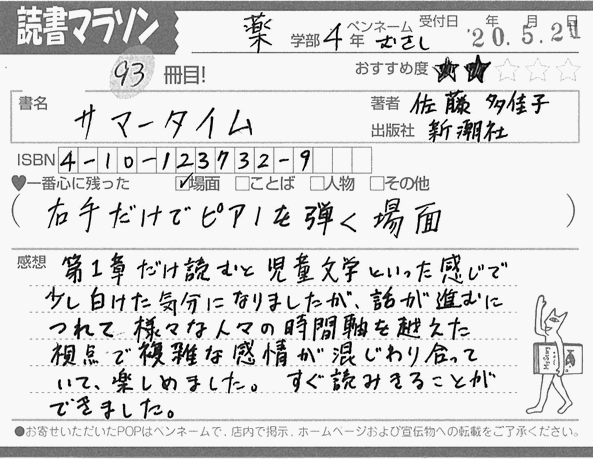 読書マラソン
薬 学部 4年 ペンネーム むさし 受付日 年 月 日 '20.5.21
93 冊目! おすすめ度 ★★☆☆☆
書名 サマータイム
著者 佐藤 多佳子
出版社 新潮社
ISBN 4-10-123732-9
♥一番心に残った ☑場面 □ことば □人物 □その他
(右手だけでピアノを弾く場面)
感想 第1章だけ読むと児童文学といった感じで
少し白けた気分になりましたが、話が進むに
つれて様々な人々の時間軸を越えた
視点で複雑な感情が混じわり合って
いて、楽しめました。 すぐ読みきることが
できました。
●お寄せいただいたPOPはペンネームで，店内で掲示，ホームページおよび宣伝物への転載をご了承ください。